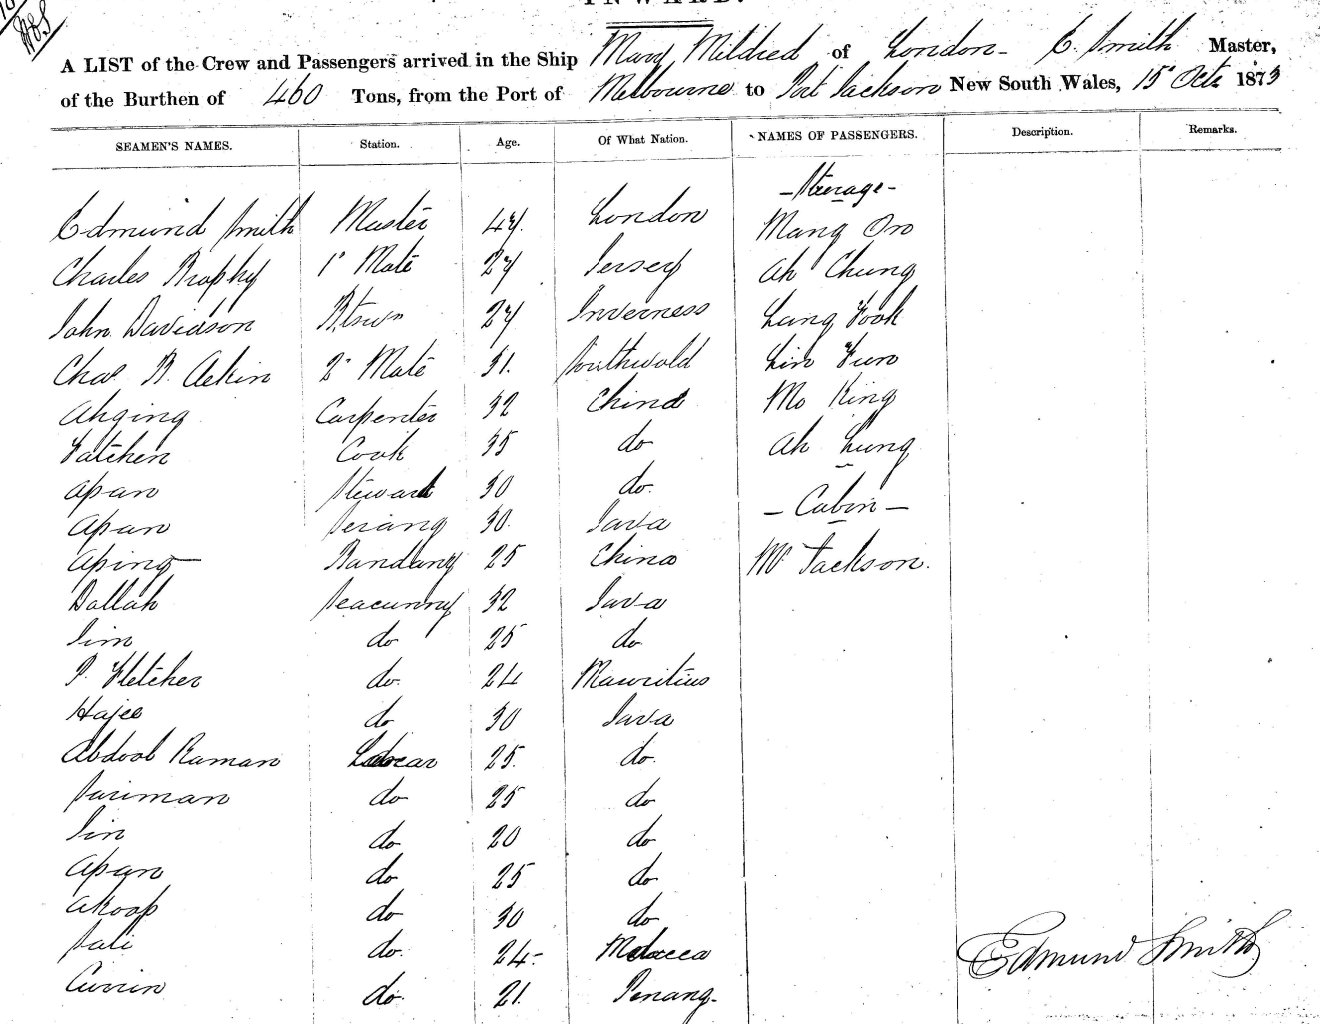 INWARD.
A LIST of the Crew and Passengers arrived in the Ship Mary Mildred of London - E. Smith Master,
of the Burthen of 460 Tons, from the Port of Melbourne to Port Jackson New South Wales, 15 Octr 1873
SEAMEN'S NAMES. Station. Age. Of What Nation. NAMES OF PASSENGERS. Description. Remarks.
- Steerage -
Edmund Smith Master 47. London Mang On
Charles Brophy 1st Mate 27 Jersey Ah Chung
John Davidson Btswn 27 Inverness Lang Fook
Chas R. Ackin 2d Mate 31. Southwold Lin Fun
Ahging Carpenter 32 China Mo King
Fatchen Cook 35 do Ah Lung
Apan Steward 30 do.
Apan Serang 30. Java - Cabin -
Aping 25 China Mr Jackson.
Dallah Seacunny 32 Java
Sim do 25 do
P. Fletcher do. 24 Mauritius
Hajee do 30 Java
Abdool Raman Lascar 25. do.
Sariman do 25 do
Sin do 20 do
Apan do 25 do
Akoop do 30 do
Sali do. 24 - Malacca
Curvin do. 21. Penang -
Edmund Smith